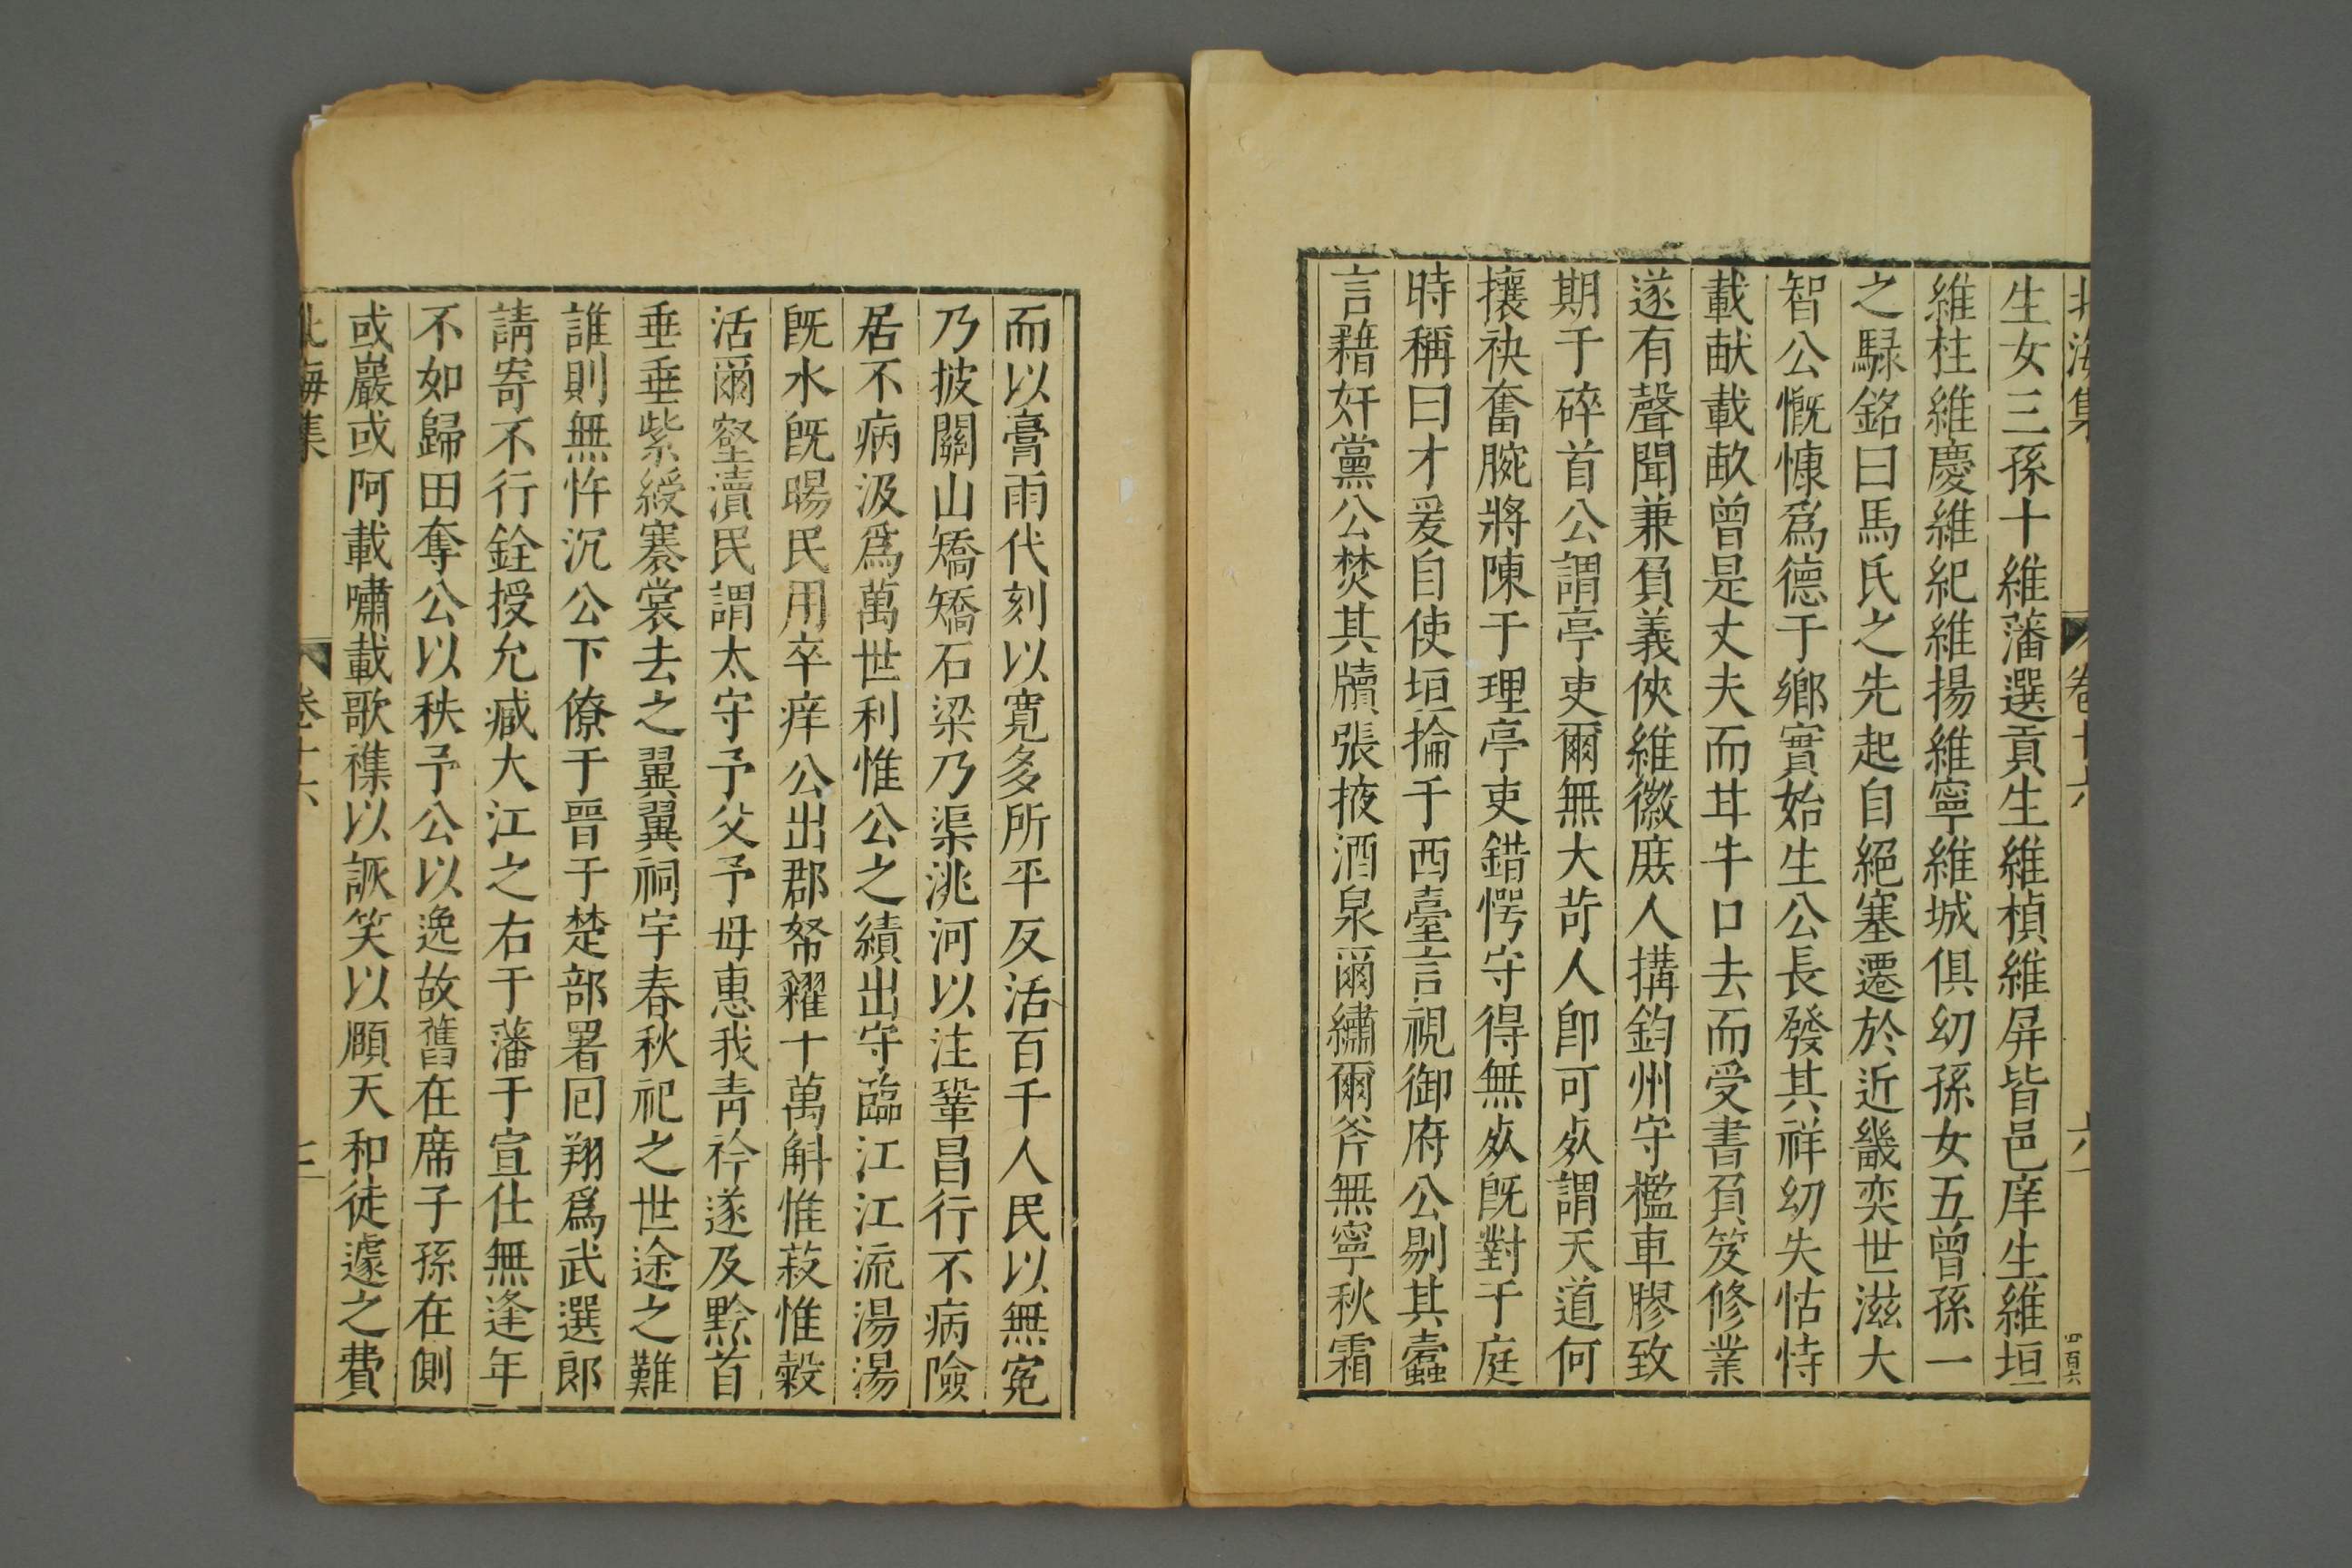 北海集 卷十六 六 四百六
生女三孫十維藩選貢生維楨維屏皆邑庠生維垣
維柱維慶維紀維揚維寧維城俱幼孫女五曾孫一
之騄銘曰馬氏之先起自絕塞遷於近畿奕世滋大
智公慨慷爲德于鄉實始生公長發其祥幼失怙恃
載猷載畝曾是丈夫而甘牛口去而受書負笈修業
遂有聲聞兼負義俠維徽庶人搆鈞州守檻車膠致
期于碎首公謂亭吏爾無大苛人卽可㱙謂天道何
攘袂奮腕將陳于理亭吏錯愕守得無㱙旣對于庭
時稱曰才爰自使垣掄于西臺言視御府公剔其蠹
言藉奸黨公焚其牘張掖酒泉爾繡爾斧無寧秋霜
而以膏雨代刻以寬多所平反活百千人民以無寃
乃披關山矯矯石梁乃渠洮河以注鞏昌行不病險
居不病汲爲萬世利惟公之績出守臨江江流湯湯
旣水旣暘民用卒痒公出郡帑糴十萬斛惟菽惟榖
活爾壑瀆民謂太守予父予母惠我靑衿遂及黔首
垂垂紫綬褰裳去之翼翼祠宇春秋祀之世途之難
誰則無忤沉公下僚于晉于楚部署囘翔爲武選郎
請寄不行銓授允臧大江之右于藩于宣仕無逢年
不如歸田奪公以秩予公以逸故舊在席子孫在側
或巖或阿載嘯載歌襍以詼笑以頤天和徒遽之費
北海集 卷十六